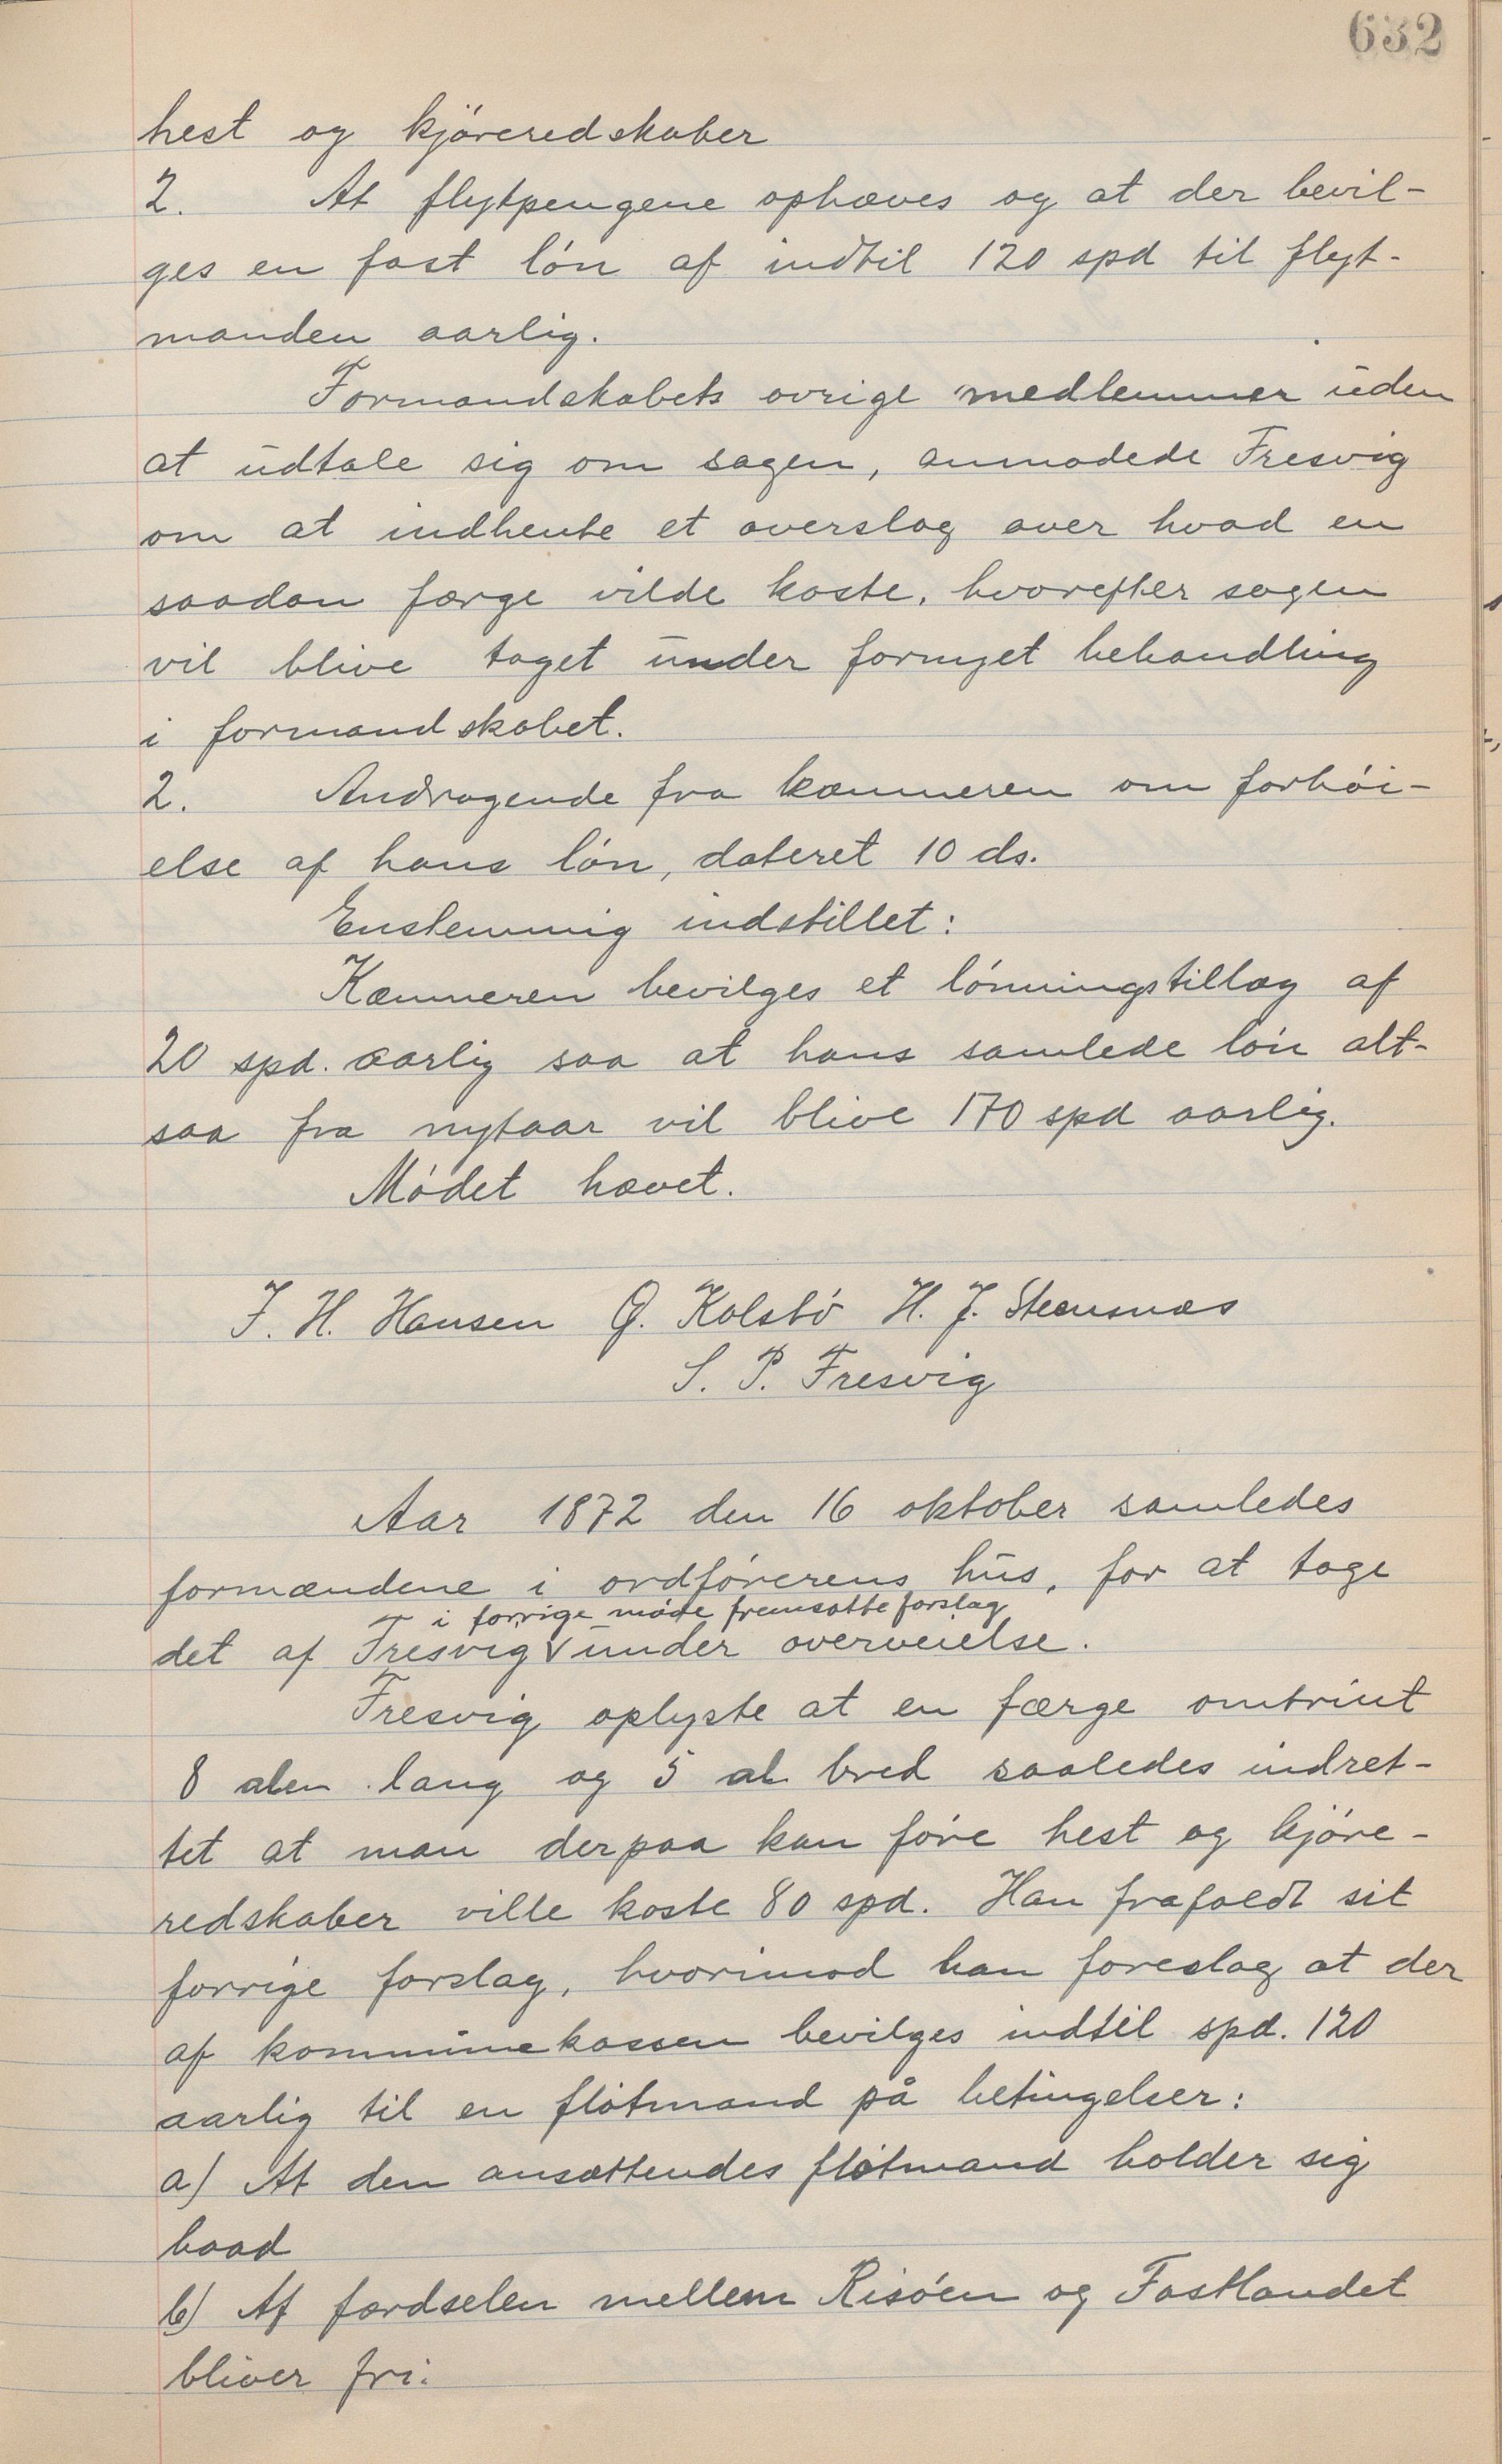 632
hest og kjøreredskaber
2. At flytpengene ophæves og at der bevil-
ges en fast løn af indtil 120 spd til flyt-
manden aarlig.
Formandskabets øvrige medlemmer uden
at udtale sig om sagen, anmodede Fresvig
om at indhente et overslag over hvad en
saadan færge vilde koste, hvorefter sagen
vil blive taget under fornyet behandling
i formandskabet.
2. Andragende fra kæmneren om forhøi-
else af hans løn, dateret 10 ds.
Enstemmig indstillet:
Kæmneren bevilges et lønningstillæg af
20 spd. aarlig saa at hans samlede løn alt-
saa fra nytaar vil blive 170 spd aarlig.
Mødet hævet.
J. H. Hansen G. Kolstø H. J. Steensnæs
S. P. Fresvig
Aar 1872 den 16 oktober samledes
formændene i ordførerens hus, for at tage
i forrige møde fremsatte forslag
det af Fresvig V under overveielse.
Fresvig oplyste at en færge omtrint
8 alen lang og 5 al bred saaledes indret-
tet at man derpaa kan føre hest og kjøre-
redskaber ville koste 80 spd. Han frafaldt sit
forrige forslag, hvorimod han foreslog at der
af kommunekassen bevilges indtil spd. 120
aarlig til en fløtmand på betingelser:
a) At den ansættendes fløtmand holder sig
baad
b) At færdselen mellem Risøen og Fastlandet
bliver fri.